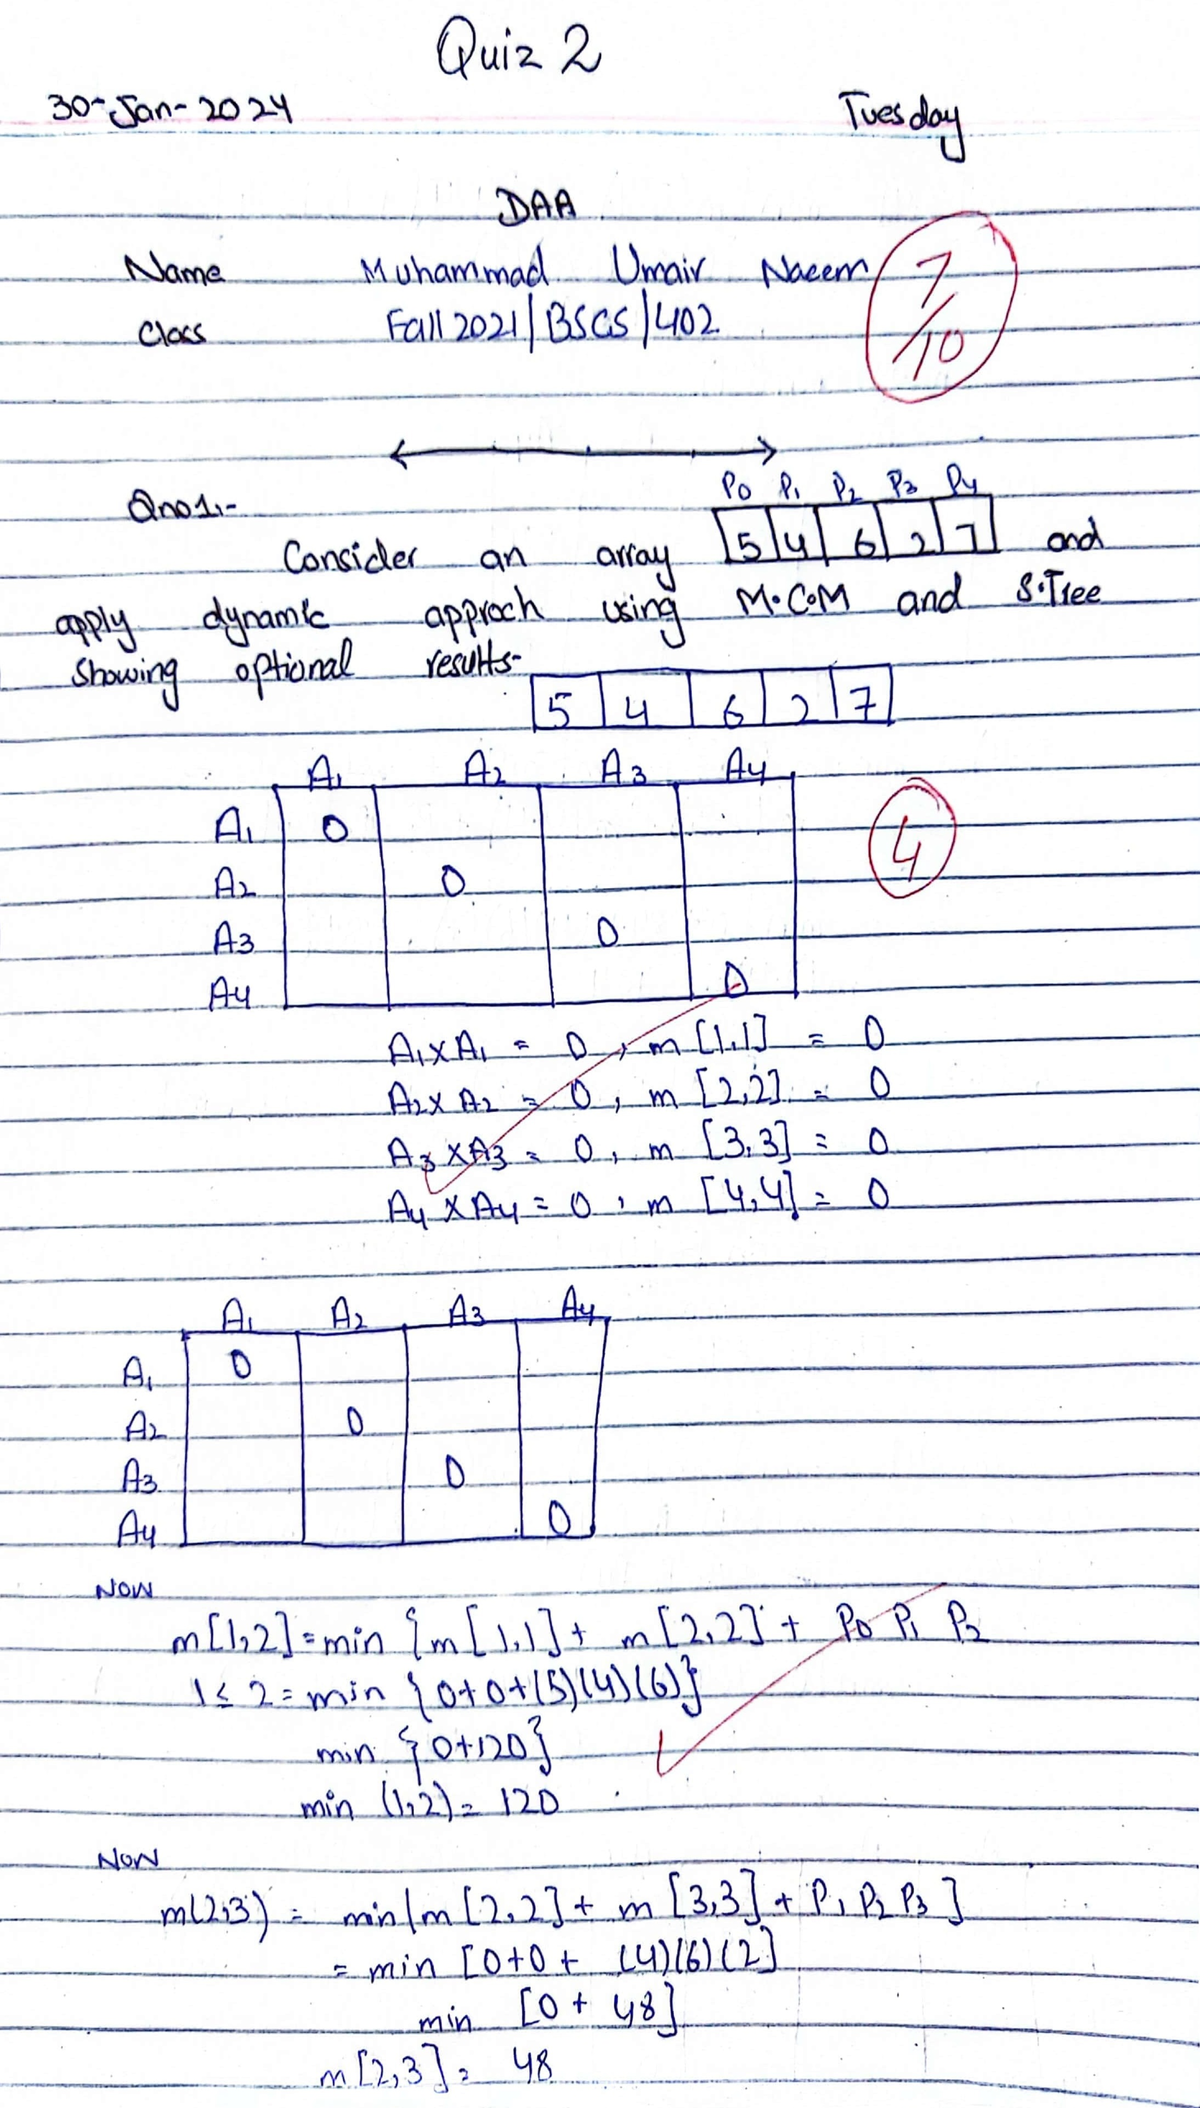 Quiz 2
30-Jan-2024 Tuesday
DAA
Name Muhammad Umair Naeem
7/10
Class Fall 2021/BSCS/402
P0 P1 P2 P3 P4
Qno1:-
Consider an array 5 4 6 2 7 and
apply dynamic approch using M.C.M and S.Tree
showing optional results-
5 4 6 2 7
A1 A2 A3 A4
A1 0
4
A2 0
A3 0
A4 0
A1xA1 = 0, m [1,1] = 0
A2xA2 = 0, m [2,2] = 0
A3xA3 = 0, m [3,3] = 0
A4xA4 = 0, m [4,4] = 0
A1 A2 A3 A4
A1 0
A2 0
A3 0
A4 0
Now
m[1,2]=min {m[1,1]+ m[2,2]+ P0 P1 P2
1≤2=min {0+0+(5)(4)(6)}
min {0+120}
min (1,2)= 120
Now
m(2,3) = min[m[2,2]+ m[3,3]+ P1 P2 P3]
= min [0+0+ (4)(6)(2]
min [0+ 48]
m[2,3]= 48